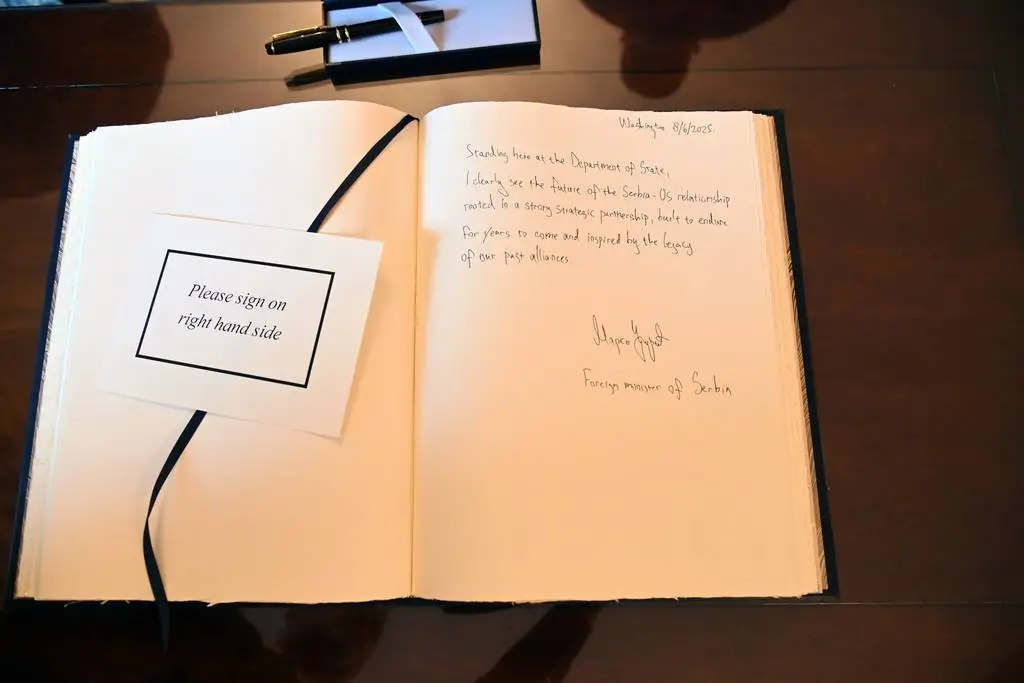 Please sign on
right hand side
Washington 8/6/2025.
Standing here at the Department of State,
I clearly see the future of the Serbia-US relationship
rooted in a strong strategic partnership, built to endure
for years to come and inspired by the legacy
of our past alliances.
Марко
Foreign minister of Serbia